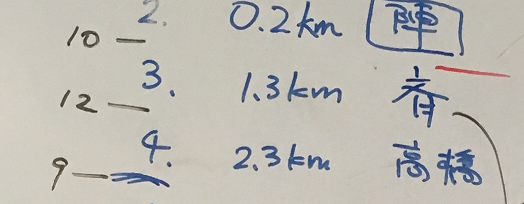 10 — 2. 0.2km 陣
12 — 3. 1.3km 斉
9 — 4. 2.3km 高橋